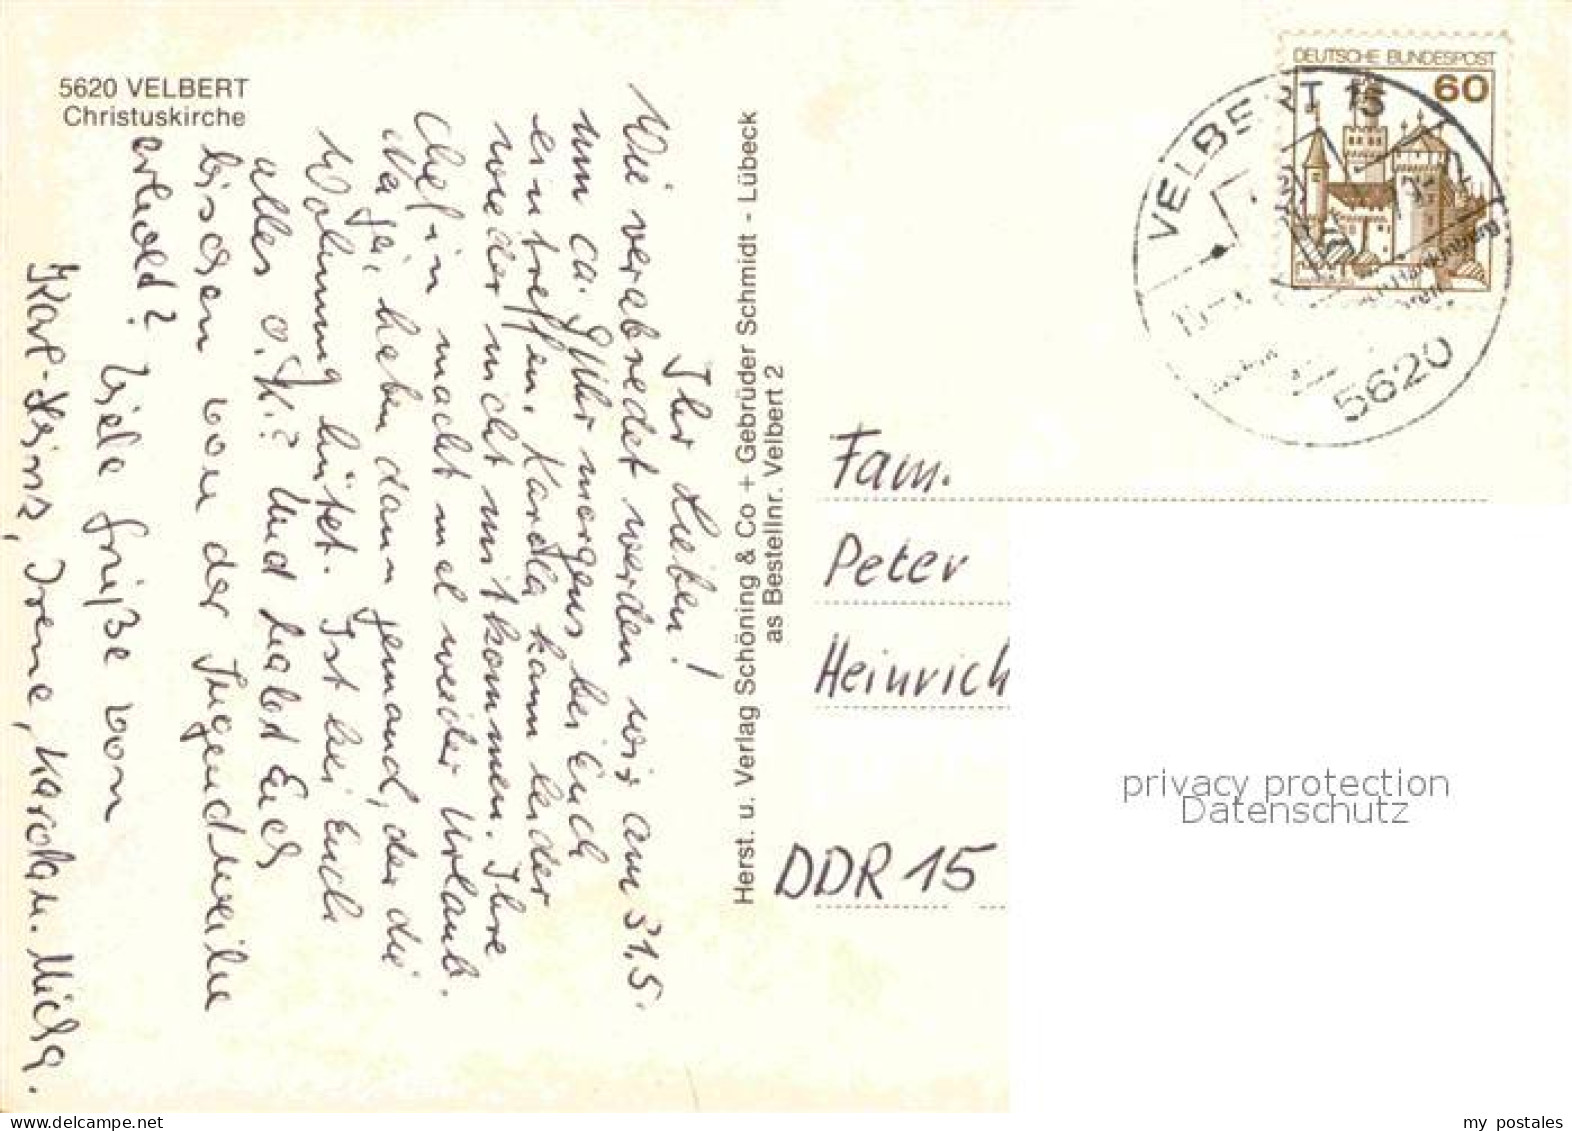 5620 VELBERT
Christuskirche
Ihr Lieben!
Wie verabredet werden wir am 31.5.
um ca. 9 Uhr morgens bei Euch
eintreffen. Karola kann leider
wieder nicht mitkommen. Ihre
Chefin macht mal wieder Urlaub.
haben dann jemand, der die
Wohnung hütet. Ist bei Euch
alles o.K.? Und habt Euch
bischen von der Jugendweihe
erholt? Viele Grüße von
Karl-Heinz, Irene, Karola u. Micha.
Herst. u. Verlag Schöning & Co + Gebrüder Schmidt - Lübeck
as Bestellnr. Velbert 2
DEUTSCHE BUNDESPOST
60
VELBERT 15
5620
Fam.
Peter
Heinrich
DDR 15
privacy protection
Datenschutz
www.delcampe.net
my postales